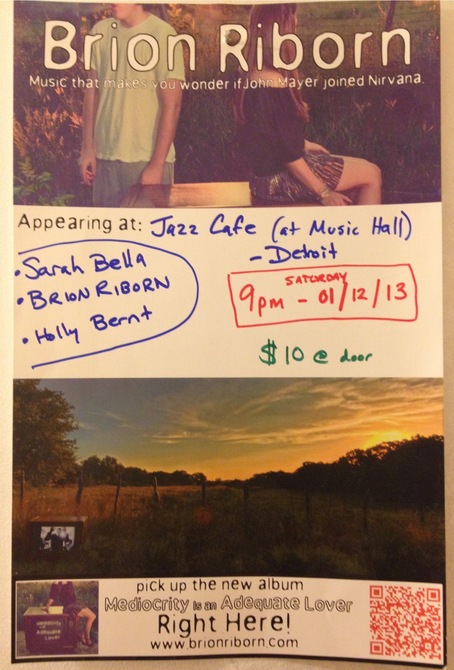 Brion Riborn
Music that makes you wonder if John Mayer joined Nirvana.
Appearing at: Jazz Cafe (at Music Hall)
- Detroit
• Sarah Bella
• BRION RIBORN
• Holly Bernt
SATURDAY
9pm - 01/12/13
$10 @ door
Mediocrity
is an
Adequate
Lover
pick up the new album
Mediocrity is an Adequate Lover
Right Here!
www.brionriborn.com